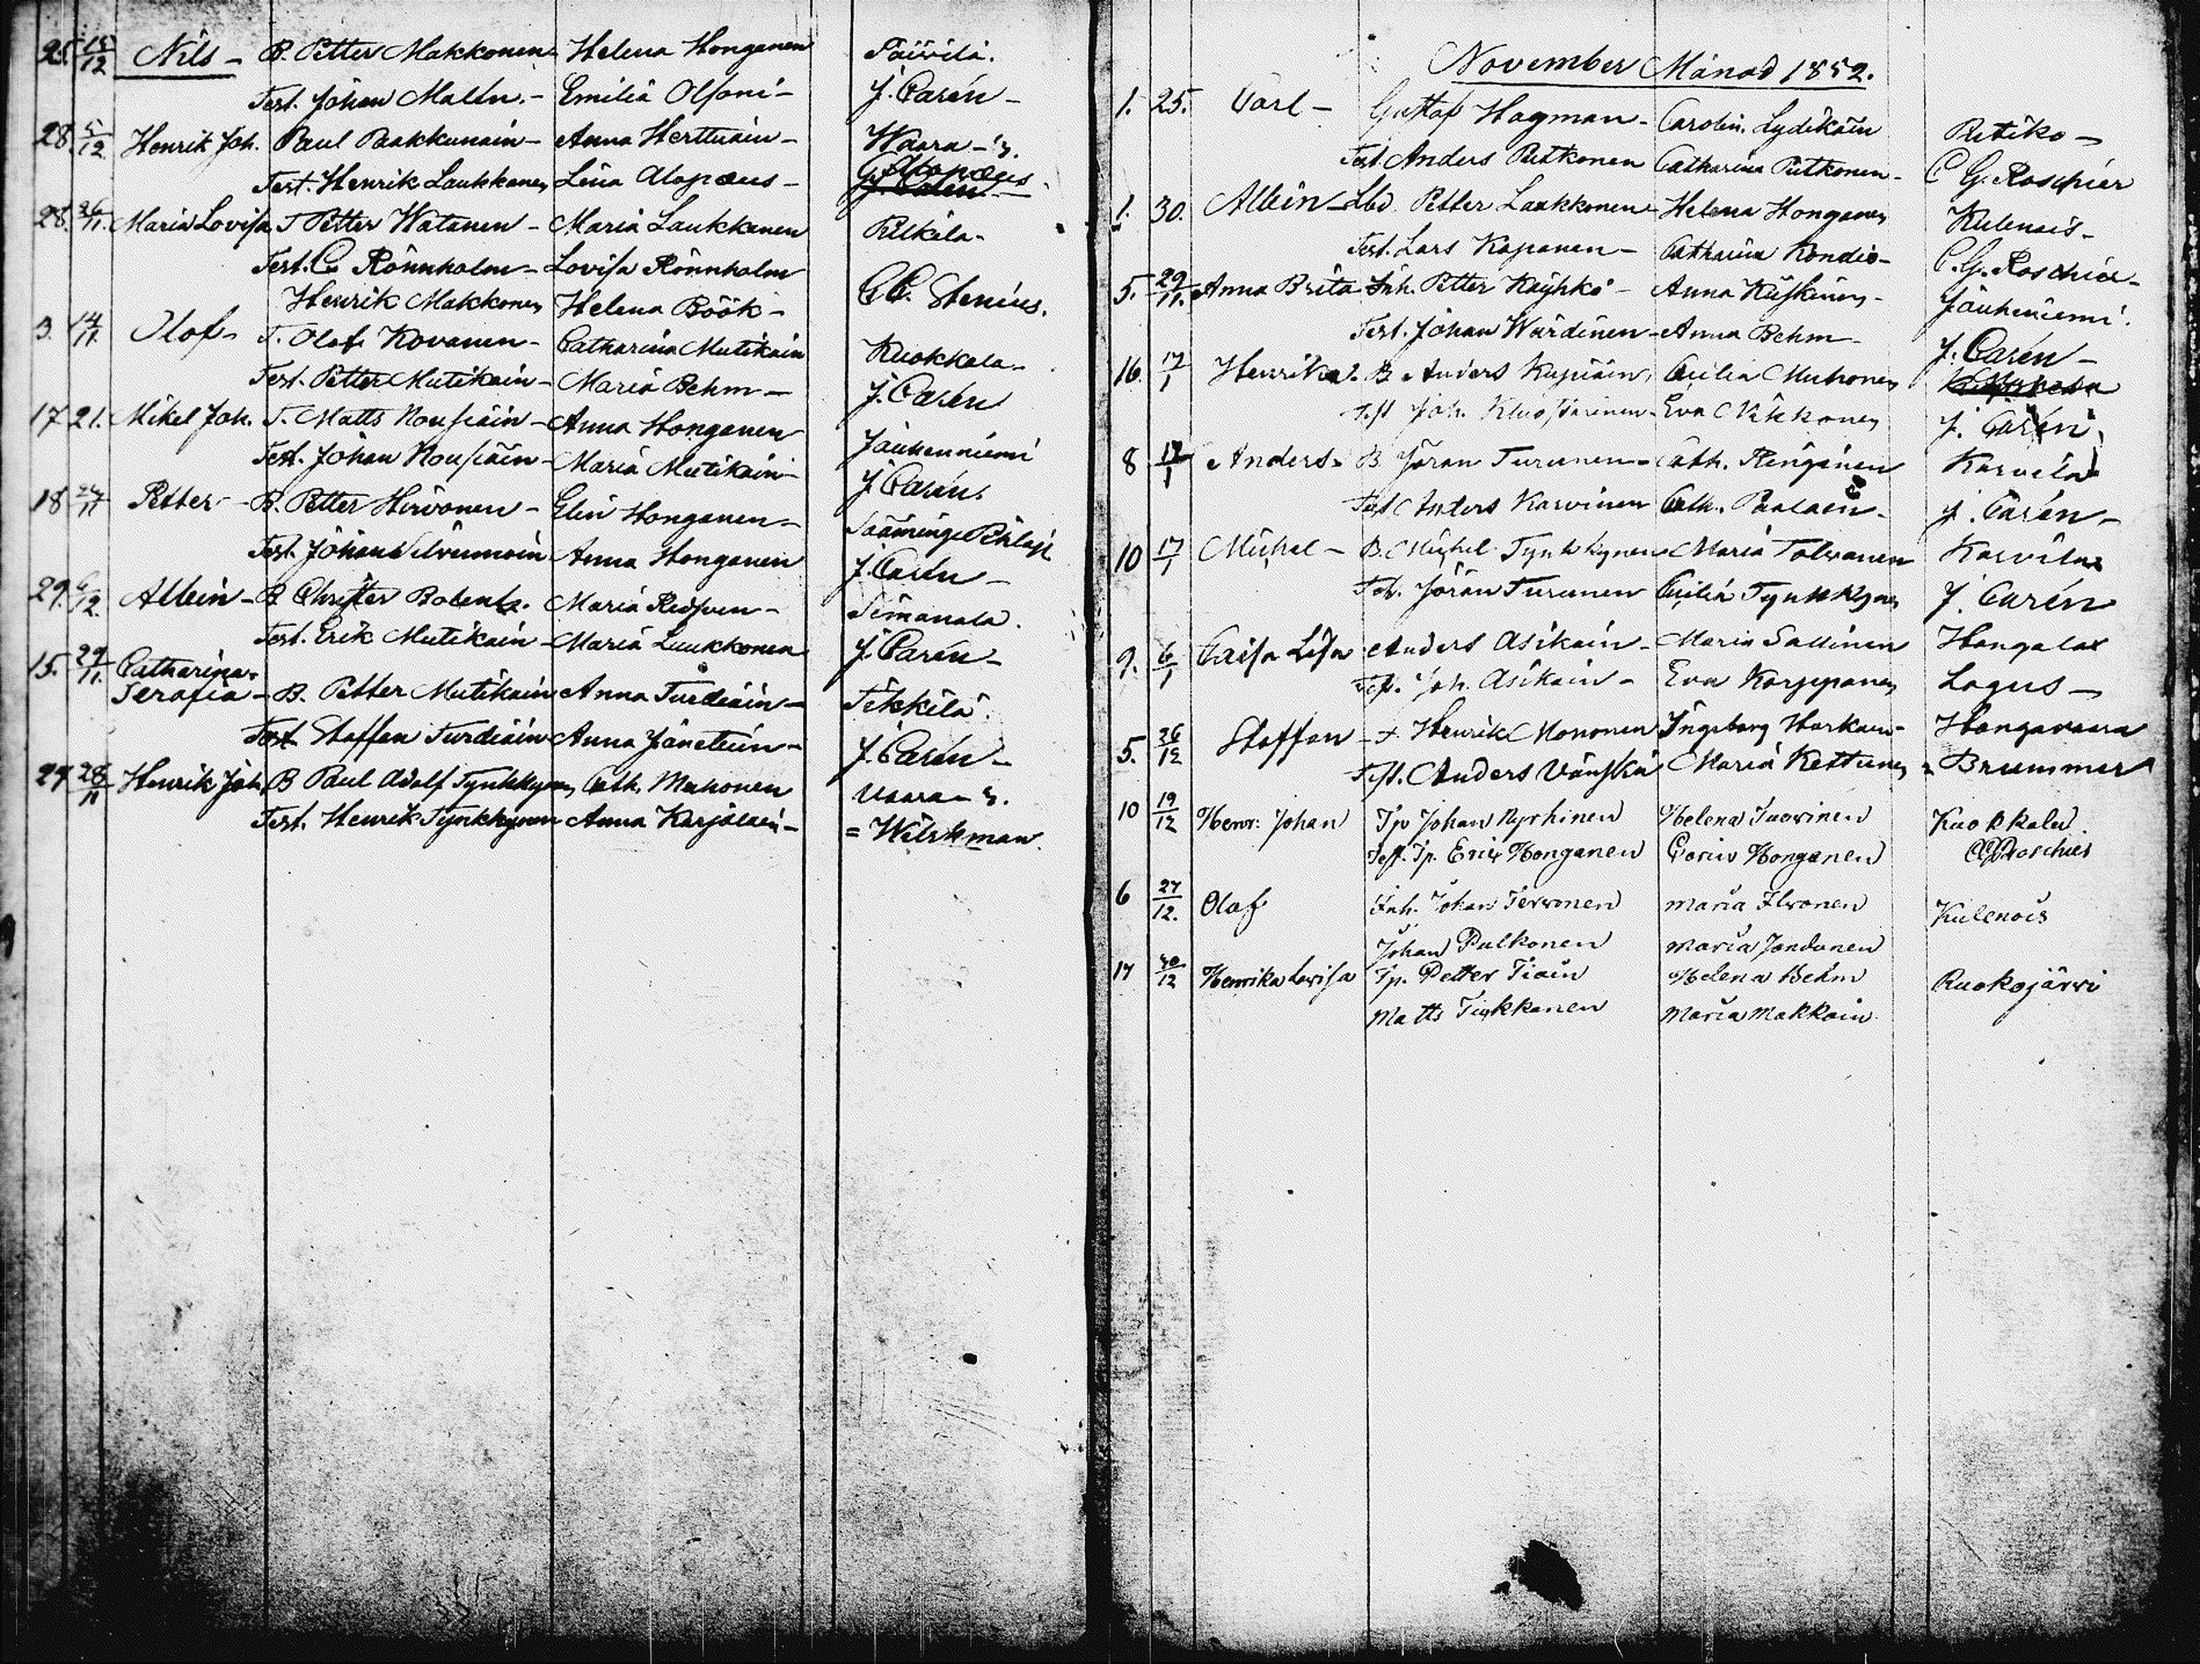 25. 15/12 Nils - B. Petter Makkonen Helena Honganen Päivilä.
Test. Johan Malin. - Emilia Olsoni - J. Carén -
28. 5/12 Henrik Joh. Paul Paakkunain - Anna Herttuain - Waara - 3.
Test. Henrik Laukkanen Lena Alopæus - Alopæus
J. Carén
28. 26/11. Maria Lovisa T. Petter Watanen - Maria Laukkanen Pitkälä -
Test. C. Rönnholm - Lovisa Rönnholm
Henrik Makkonen Helena Böök - Stenius.
3. 14/11. Olof - T. Olof Kovanen - Catharina Mutikain Kuokkala -
Test. Petter Mutikain - Maria Behm - J. Carén
17 21. Mikel Joh. T. Matts Nousiain - Anna Honganen Jauhenniemi
Test. Johan Nousiäin - Maria Mutikain - J. Carén.
18 /11 Petter - B. Petter Hirvonen - Elin Honganen - Sääminge
Test. Johan Silvennoin Anna Honganen J. Carén -
29. 6/12 Albin - B Christer Maria - Simanala.
Test. Erik Mutikain - Maria Luukkonen J. Carén -
15. 29/11. Catharina
Serafia - B. Petter Mutikain Anna Turdiain - Tikkilä.
Test Staffan Turdiäin Anna - J. Carén -
27. 28/11 Henrik Joh. B Paul Adolf Tynkkynen Cath. Muhonen Vaara - 3.
Test. Henrik Tynkkynen Anna Karjalain - = Wilskman.
November Månad 1852.
1. 25. Carl - Gustaf Hagman - Carolin. Lydikäin Ritiko -
Test. Anders Putkonen Catharina Putkonen - C. G. Roschier
1. 30. Albin - Lbd. Petter Laukkonen - Helena Honganen Kulenois -
Test. Lars Kapanen - Catharina Kondio - C. G. Roschier -
5. 29/11. Anna Brita Inh. Petter Käyhkö - Anna Kiiskinen - Jauheniemi.
Test. Johan Wärdinen - Anna Behm - J. Carén -
16. 17/1 Henrika L. B Anders Kupiain, Cecilia Muhonen
Test Joh. Eva Nikkonen J. Carén.
8 17/1 Anders - B. Jöran Turunen - Cath. Karvila
Test Anders Karvinen Cath. Paalain - J. Carén -
10 17/1 Michel - B. Michel Tynkkynen Maria Tolvanen Karvila
Test. Jöran Turunen Cecilia Tynkkynen J. Carén
9. 6/1 Caisa Lisa Anders Asikain - Maria Sallinen Hangalax
Test. Joh. Asikain - Eva Karppanen Lagus -
5. 26/12 Staffan - Henrik Mononen Ingeborg Harkain - Hongavaara
Test. Anders Vänskä Maria Kettunen Brummer
10 19/12 Henr: Johan Tp Johan Nyrhinen Helena Tuovinen Kuokkala.
Test. Tp. Erik Honganen Carin Honganen Roschier
6 27/12. Olof Inh. Johan Tervonen Maria Ilvonen Kulenois
Johan Pulkonen Maria Jandunen
17 30/12 Henrika Lovisa Tp. Petter Tiain Helena Behm Ruokojärvi
Matts Tiukkanen Maria Makkoin